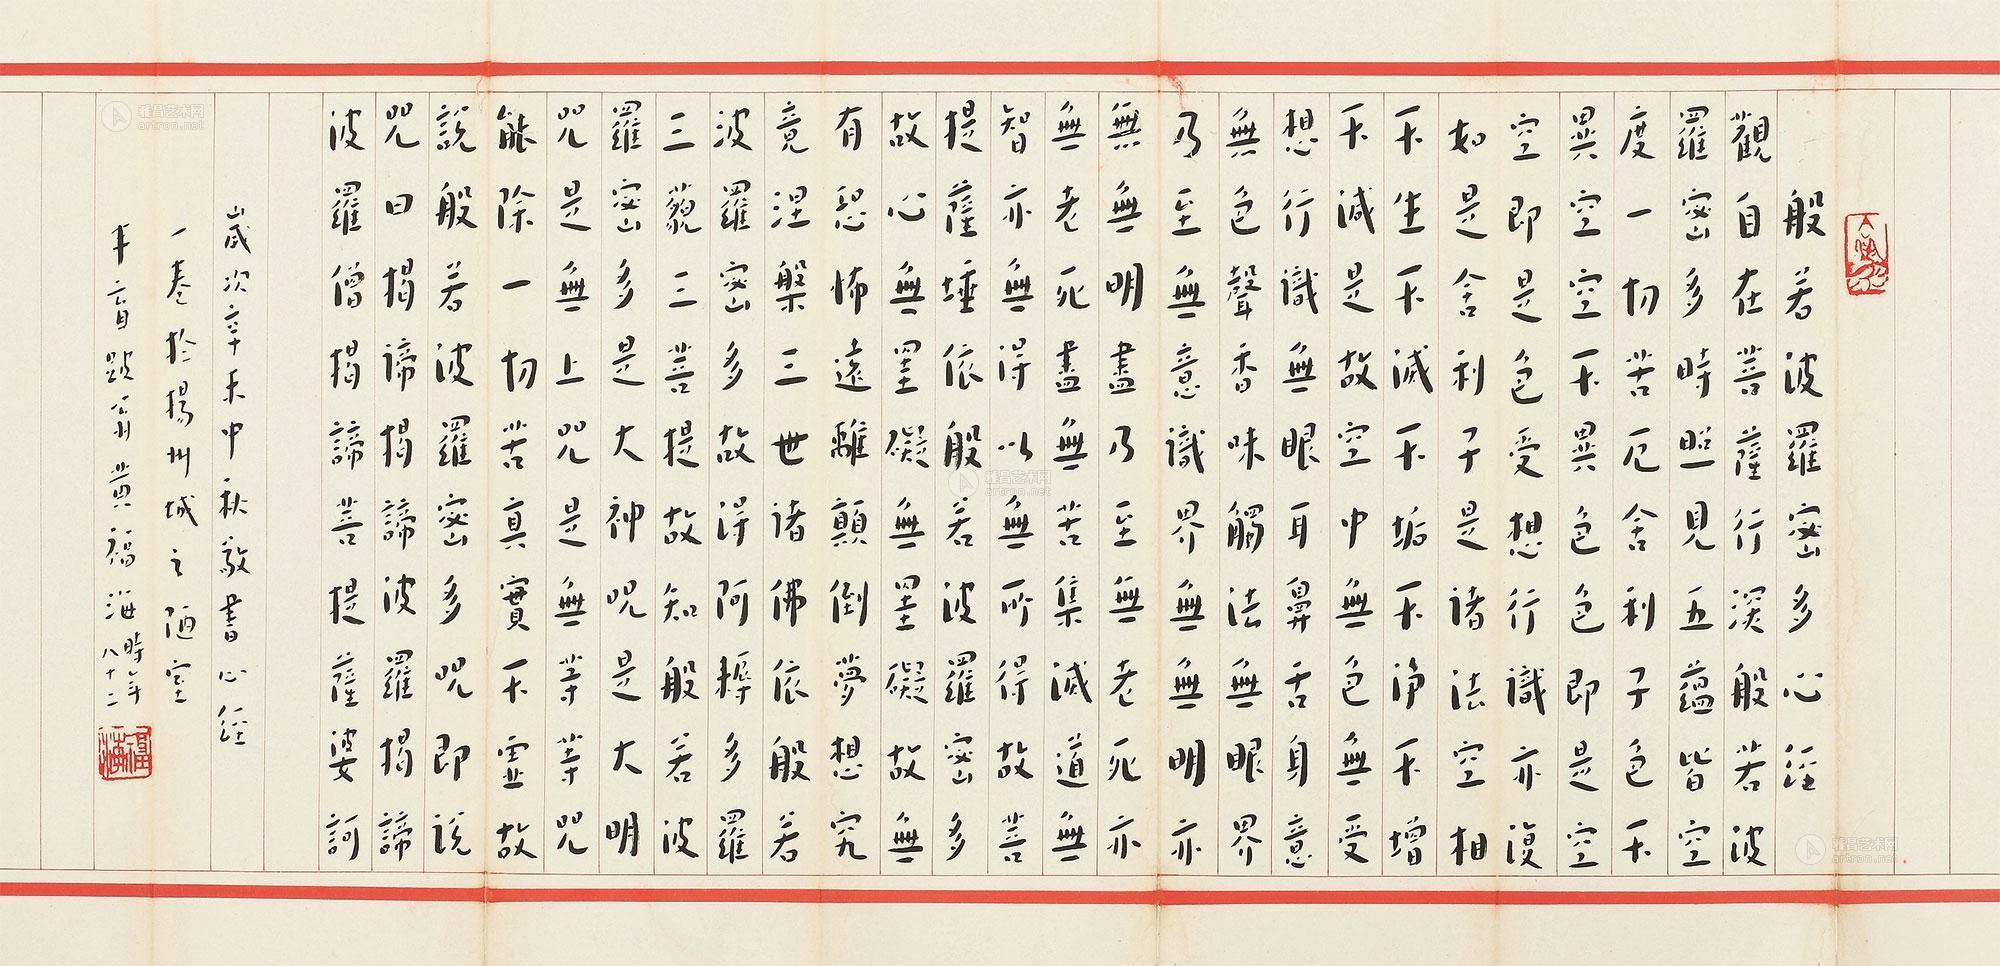 般若波羅密多心經
觀自在菩薩行深般若波
羅密多時照見五蘊皆空
度一切苦厄舍利子色不
異空空不異色色即是空
空即是色受想行識亦復
如是舍利子是諸法空相
不生不滅不垢不淨不增
不減是故空中無色無受
想行識無眼耳鼻舌身意
無色聲香味觸法無眼界
乃至無意識界無無明亦
無無明盡乃至無老死亦
無老死盡無苦集滅道無
智亦無得以無所得故菩
提薩埵依般若波羅密多
故心無罣礙無罣礙故無
有恐怖遠離顛倒夢想究
竟涅槃三世諸佛依般若
波羅密多故得阿耨多羅
三藐三菩提故知般若波
羅密多是大神咒是大明
咒是無上咒是無等等咒
能除一切苦真實不虛故
說般若波羅密多咒即說
咒曰揭諦揭諦波羅揭諦
波羅僧揭諦菩提薩婆訶
歲次辛未中秋敬書心經
一卷於揚州城之陋室
半盲跛翁黃福海時年八十二
福海
雅昌艺术网
artron.net
雅昌艺术网
artron.net
雅昌艺术网
artron.net